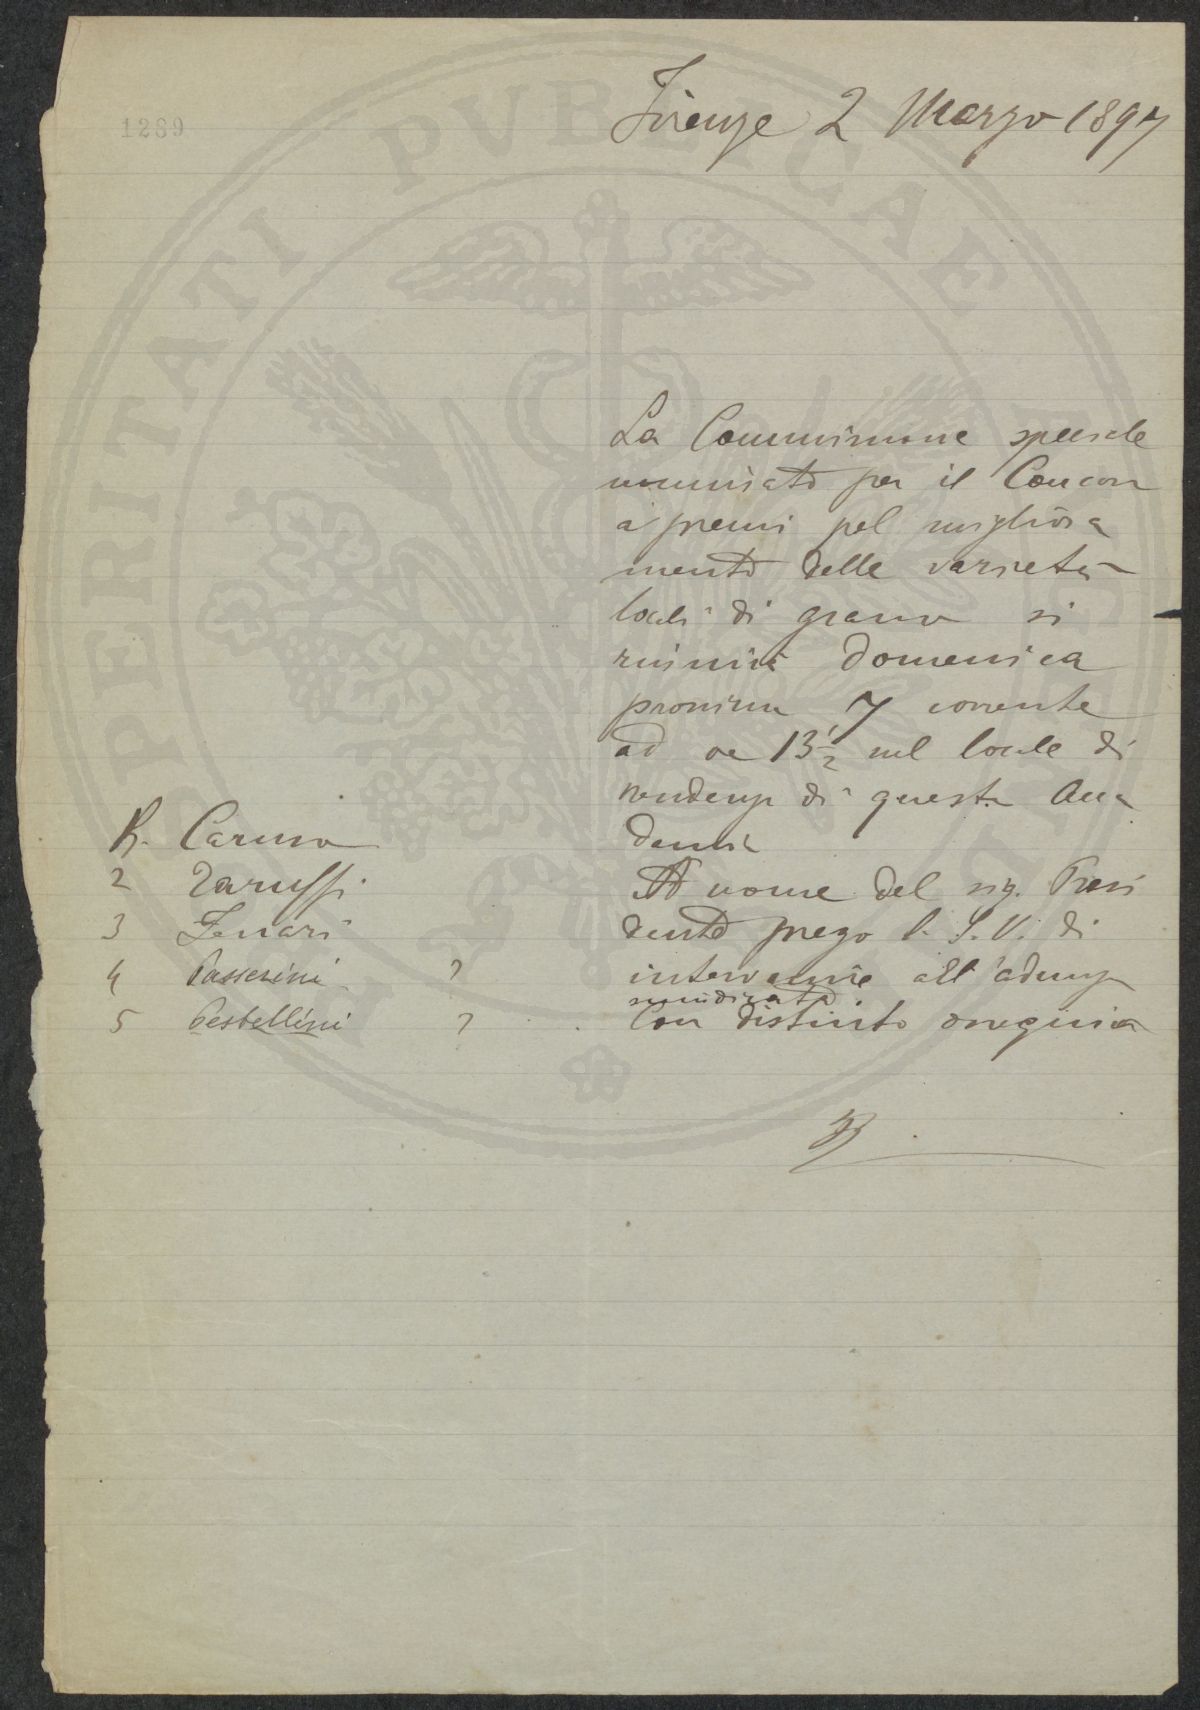 1289
Firenze 2 Marzo 1897
La Commissione speciale
nominata per il Concor
a premi pel migliora
mento delle varietà
locali di grano si
riunirà domenica
prossima 7 corrente
ad ore 13½ nel locale di
residenza di questa Acca
demia
A nome del sig. Presi
dente prego la S.V. di
intervenire all'adunza
sunndicata
Con distinto ossequio
R. Caruso
2 Taruffi
3 Ferrari
4 Passerini ?
5 Pestellini ?
PROSPERITATI PVBLICAE